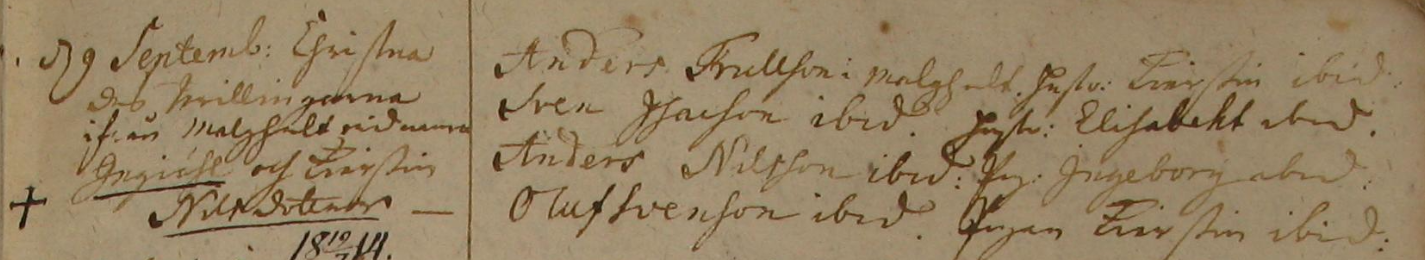 d 9 Septemb: Christna
des Trillingarna
ifrån Malghult vid namn
och Kierstin
Nilsdotter
18 19/7 14.
Anders Trullson i Malghult. Hustr: Kierstin ibid:
Sven Isacson ibid. Hustr: Elisabeht ibid.
Anders Nilsson ibid: Pig: Ingeborg ibid:
Oluf Svenson ibid. Pigan Kierstin ibid: